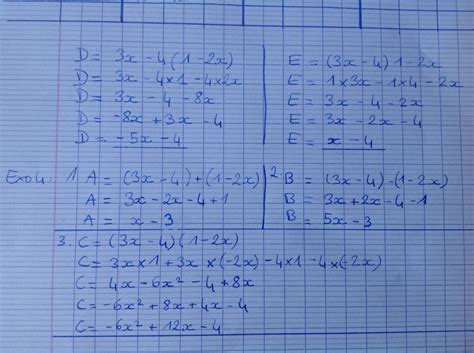 D = 3x - 4 (1 - 2x)
D = 3x - 4×1 - 4×2x
D = 3x - 4 - 8x
D = -8x + 3x - 4
D = -5x - 4
E = (3x - 4) 1 - 2x
E = 1×3x - 1×4 - 2x
E = 3x - 4 - 2x
E = 3x - 2x - 4
E = x - 4
Exo 4: 1. A = (3x - 4) + (1 - 2x)
A = 3x - 2x - 4 + 1
A = x - 3
2. B = (3x - 4) - (1 - 2x)
B = 3x + 2x - 4 - 1
B = 5x - 3
3. C = (3x - 4) (1 - 2x)
C = 3x×1 + 3x × (-2x) - 4×1 - 4×(-2x)
C = 4x - 6x² - 4 + 8x
C = -6x² + 8x + 4x - 4
C = -6x² + 12x - 4